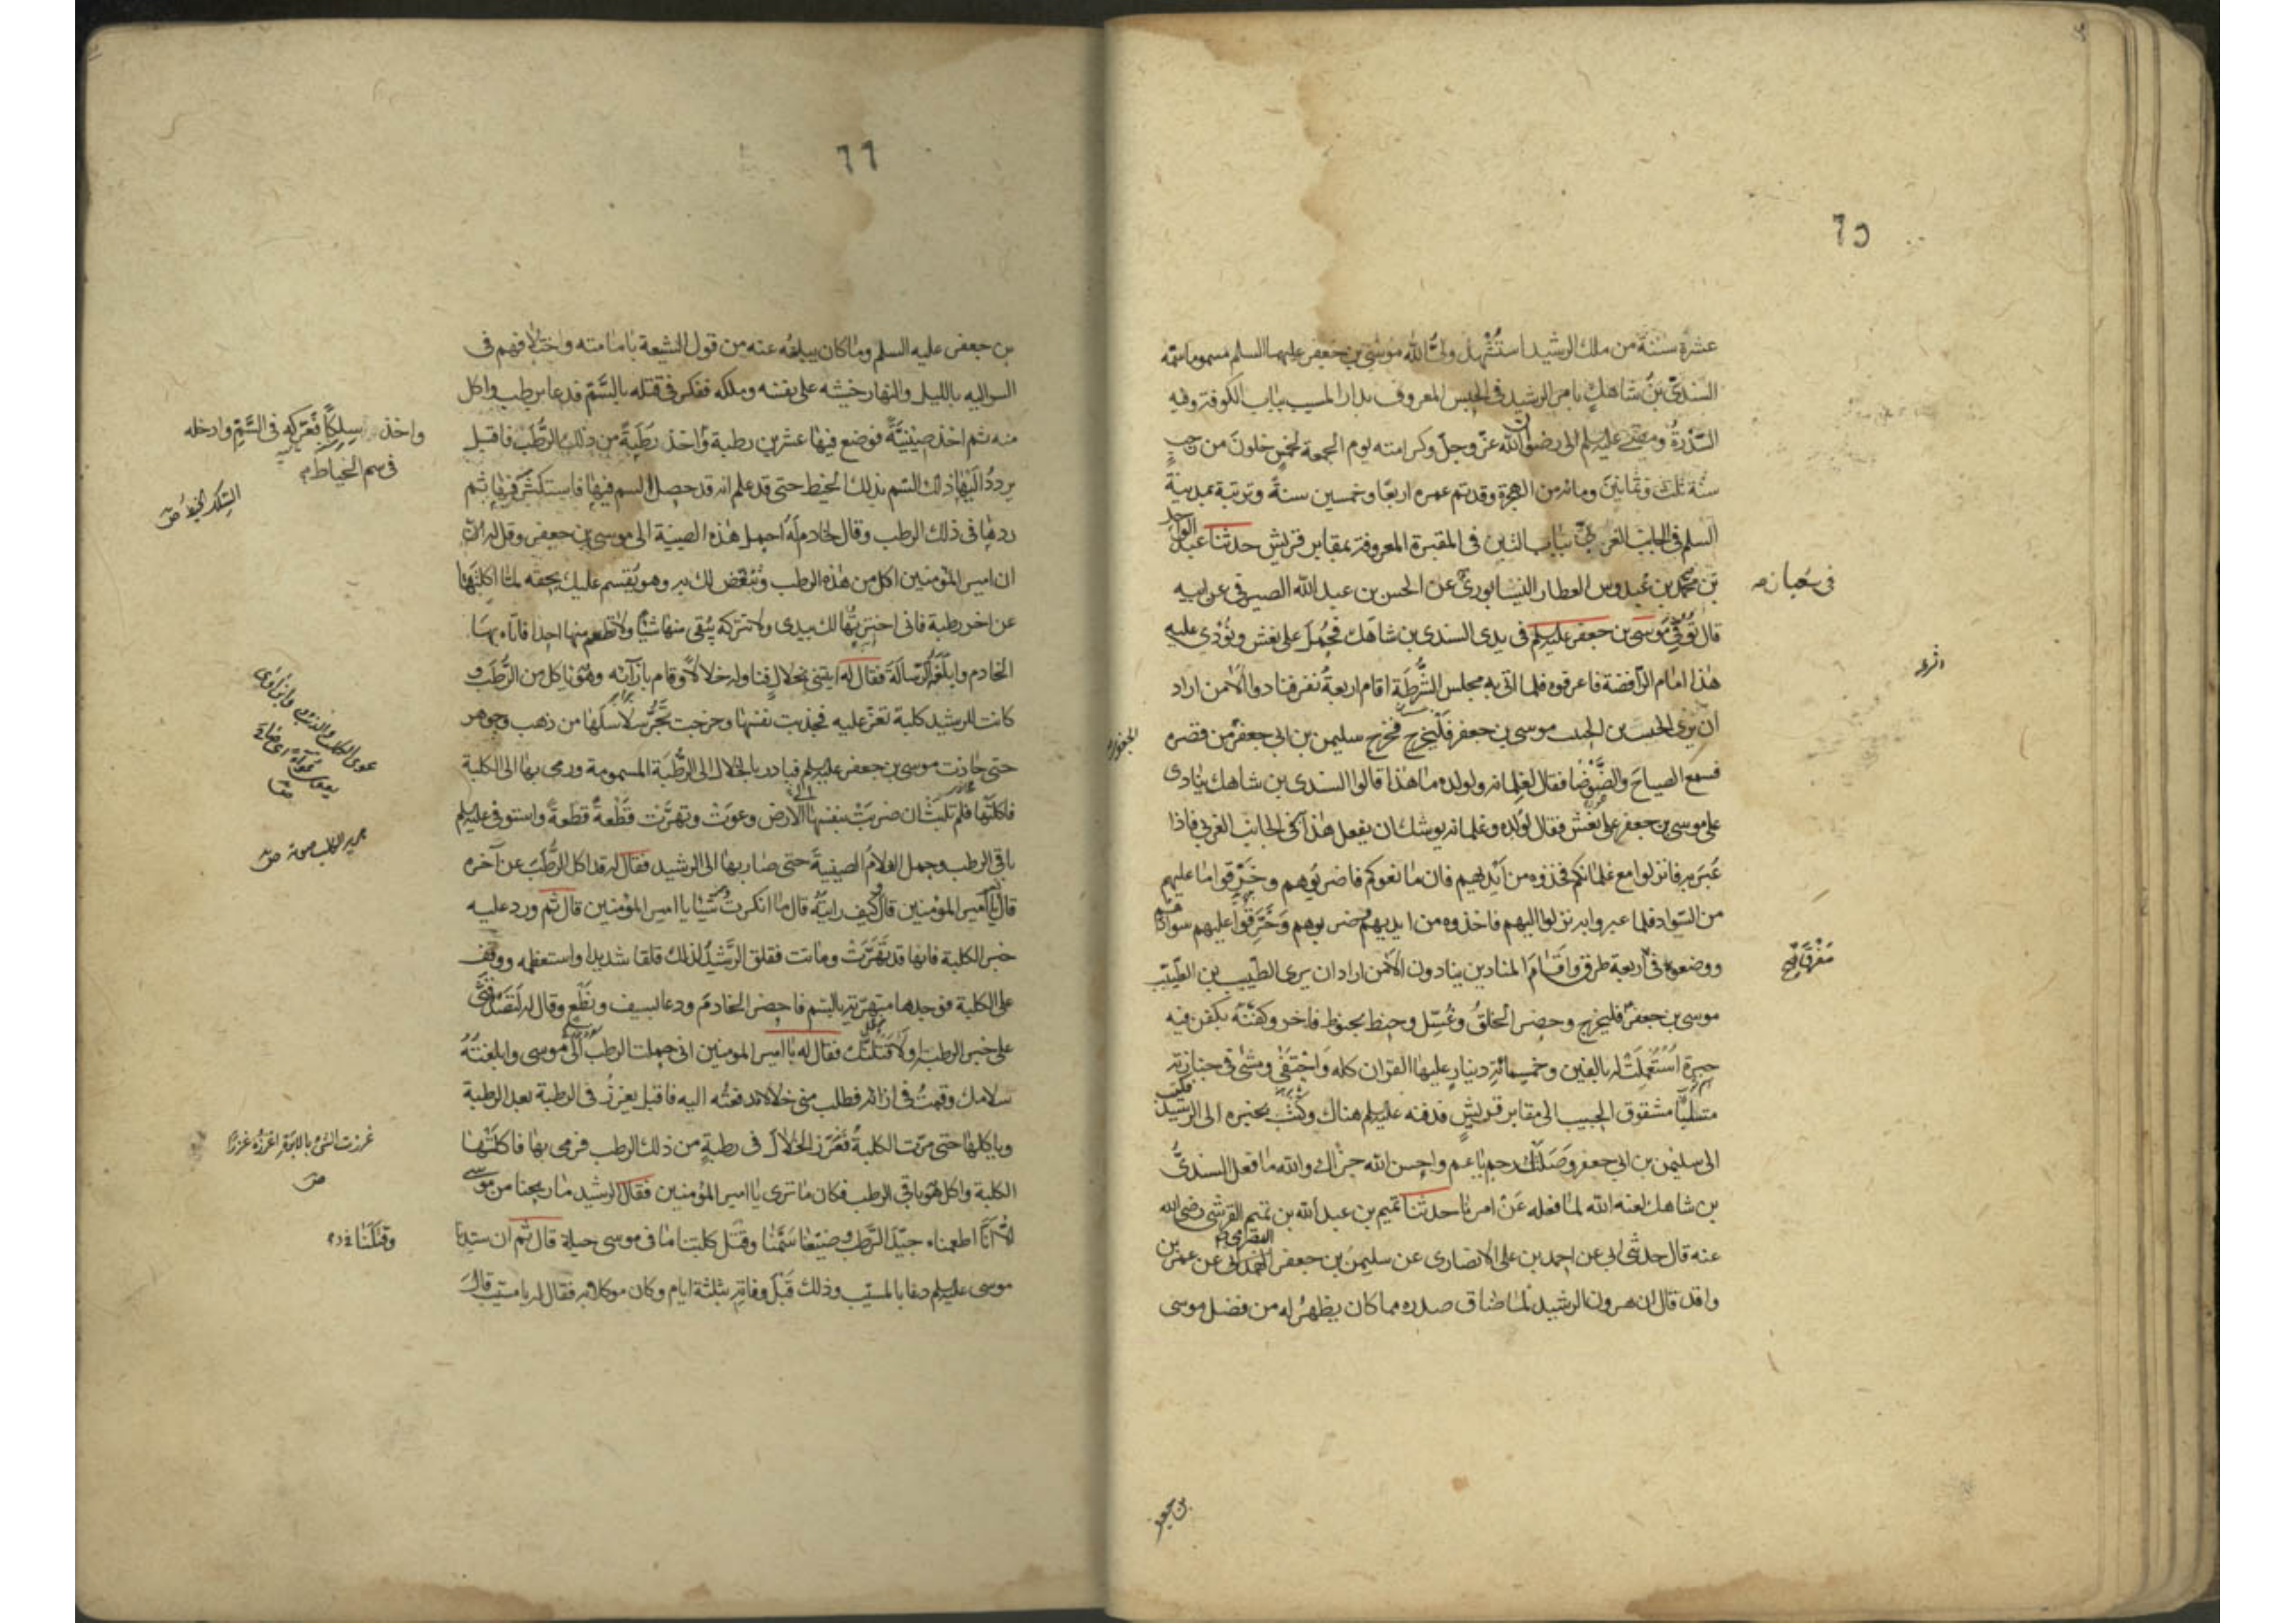 ٦٥
عشرة سنة من ملك الرشيد استشهد ولى الله موسى بن جعفر عليهما السلم مسموما سمّه
السندىّ بن شاهك بامر الرشيد فى الحبس المعروف بدار المسيب بباب الكوفة وفيه
السّدْرةُ ومضى عليه السلم الى رضوان الله عزّ وجلّ وكرامته يوم الجمعة لخمسٍ خلونَ من رجب
سنة ثلث وثمانين ومائة من الهجرة وقد تم عمره اربعًا وخمسين سنةً وتربته بمدينة
السلم فى الجانب الغربىّ بباب التين فى المقبرة المعروفة بمقابر قريش حدثنا عبد الواحد
بن محمد بن عبدوس العطار النيشابورىّ عن الحسن بن عبد الله الصيرفى عن ابيه
فى
قال توفّى موسى بن جعفر عليه السلم فى يدى السندى بن شاهك فحُمِلَ على نعش ونُودى عليه
هذا امام الرّافضة فاعرفوه فلما اتى به مجلس الشُّرطَة اقام اربعةُ نفر فنادوا الا من اراد
ان يرى الخبيث بن الخبيث موسى بن جعفر فليخرج فخرج سليمن بن ابى جعفر من قصره
فسمع الصياحَ والضّوضا فقال لغلمانه ولولده ما هذا قالوا السندى بن شاهك ينادى
على موسى بن جعفر على نعش فقال لولده وغلمانه يوشك ان يفعل هذا كى الجانب الغربى فاذا
عَبَر به فانزلوا مع غلمانكم فخذوه من ايديهم فان مانعوكم فاضربوهم وخرّقوا ما عليهم
من السّواد فلما عبروا به نزلوا اليهم فاخذوه من ايديهم وضربوهم وخرّقوا عليهم سوادهم
ووضعوه فى اربعة طرق واقام المنادين ينادون الا من اراد ان يرى الطّيب بن الطّيّب
موسى بن جعفر فليخرج وحضر الخلقُ وغُسّل وحنط بحنوط فاخر وكفنَه بكفن فيه
حبرة استُعمِلَتْ له بالفين وخمسمائةِ دينارٍ عليها القران كله وَاحْتَفَى ومشى فى جنازته
متسلّبًا مشقوق الجيب الى مقابر قريشٍ فدفنه عليه السلم هناك وكتب بخبره الى الرشيد فكتب
الى سليمن بن ابى جعفر وصَلَتْكَ رحم يا عم واحسن الله جزاك والله ما فعل السندىُّ
بن شاهك لعنه الله لما فعله عَنْ امرنا حدثنا تميم بن عبد الله بن تميم القرشى رضى الله
عنه قال حدثنى ابى عن احمد بن على الانصارى عن سليمن بن جعفر عن عمر بن
واقد قال ان هرون الرشيد لما ضاق صدره مما كان يظهر له من فضل موسى
بن جعفر
٦٦
بن جعفر عليه السلم وما كان يبلغه عنه من قول الشيعة بامامته واختلافهم فى
السر اليه بالليل والنهار خشيه على نفسه وملكه ففكر فى قتله بالسّمّ فدعا برطب واكل
منه ثم اخذ صينيّةً فوضع فيها عشرين رطبة واخذ رطَبةً من ذلك الرُّطَب فاقبل
واخذ سِلكًا فَعَرَكَه فى السَّمّ وادخله
فى سم الخياط
يردد اليها ذلك السّم بذلك الخيط حتى قد علم انه قد حصل السم فيها فاستكثر فيها ثم
السّلك الخيط ص
ردها فى ذلك الرطب وقال لخادم له احمل هذه الصينية الى موسى بن جعفر وقل له
ان امير المؤمنين اكل من هذه الرطب وتنغّص لك به وهو يُقسم عليك بحقه لمّا اكلتها
عن اخر رطبة فانى اخترتها لك بيدى ولا تتركه يُبقى منها شيًا ولا تطعم منها احدا فاتاه بها
الخادم وابلغه الرّسالة فقال له ايتنى بخلالٍ فناوله خلالًا وقام بازآئه وهو ياكل من الرّطَب و
كانت للرشيد كلبة تعز عليه فجذبت نفسها وخرجت تجرُّ سلاسلها من ذهب وجوهر
حتى حاذت موسى بن جعفر عليه السلم فبادر بالخلال الى الرُّطَبة المسمومة ورمى بها الى الكلبة
فاكلتها فلم تلبث ان ضربَتْ بنفسها الى الارض وعوَت وتهرّت قِطْعةً قطعةً واستوفى عليه السلم
باقى الرطب وحمل الغلام الصينية حتى صار بها الى الرشيد فقال له قد اكل الرُّطَبَ عن آخره
هرير الكلب صوته ص
قال يا امير المؤمنين قال كيف رايتَه قال ما انكرت شيًا يا امير المؤمنين قال ثم ورد عليه
خبر الكلبة فانها قد تهرّتْ وماتت فقلق الرّشيد لذلك قلقا شديدا واستعظمه ووقف
على الكلبة فوجدها متهرّية بالسّم فاحضر الخادمَ ودعا بسيف ونِطْع وقال له لتصدقنى
على خبر الرطب او لاقتلنّك فقال له يا امير المومنين انى حملت الرطب الى موسى وابلغتُهُ
سلامك وقمتُ فى ازائه فطلب منى خلالا فدفعتُه اليه فاقبل يغرز فى الرطبة بعد الرطبة
وياكلها حتى مرّت الكلبةُ فغَرَز الخلالَ فى رطبةٍ من ذلك الرطب فرمى بها فاكلتها
غرزت الشئ بالابرة اغرزه غرزًا
ص
الكلبة واكل هو باقى الرطب فكان ما ترى يا امير المؤمنين فقال الرشيد ما ربحنا من موسى
الا انّا اطعمناه جيّدَ الرّطب وضيّعنا سَمّنا وقتل كلبتنا ما فى موسى حيلة قال ثم ان سيدنا
وقتلنا
موسى عليه السلم دعا بالمسيّب وذلك قَبْلَ وفاته بثلثة ايام وكان موكلا به فقال له يا مسيّب قالَ